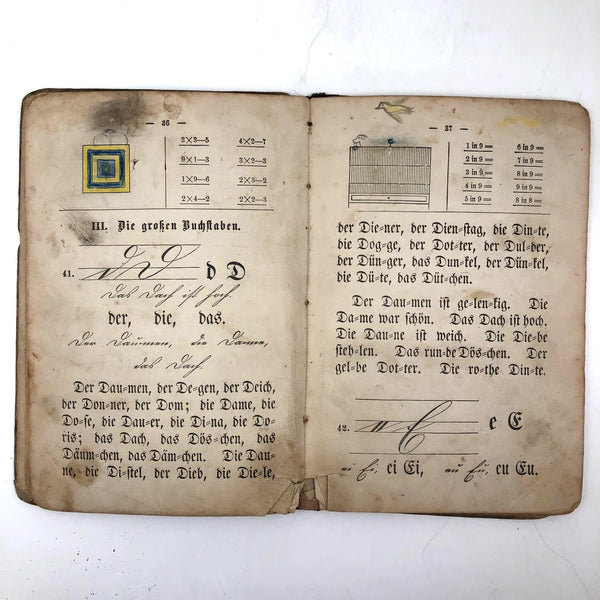 — 36 —
3×3—5 4×2—7
9×1—3 3×2—3
1×9—6 2×3—2
2×4—2 3×2—3
III. Die großen Buchstaben.
41. d D d D
das Dach ist hoch.
der, die, das.
Der Daumen, die Danne,
das Dach.
Der Dau⸗men, der De⸗gen, der Deich,
der Don⸗ner, der Dom; die Dame, die
Do⸗se, die Dau⸗er, die Di⸗na, die Do⸗
ris; das Dach, das Dös⸗chen, das
Däum⸗chen, das Däm⸗chen. Die Dau⸗
ne, die Di⸗stel, der Dieb, die Die⸗le,
— 37 —
1 in 9 = 6 in 9 =
2 in 9 = 7 in 9 =
3 in 9 = 9 in 9 =
4 in 9 = 8 in 9 =
5 in 9 = 8 in 8 =
der Die⸗ner, der Dien⸗stag, die Din⸗te,
die Dog⸗ge, der Dot⸗ter, der Dul⸗der,
der Dün⸗ger, das Dun⸗kel, der Dün⸗kel,
die Dü⸗te, das Düt⸗chen.
Der Dau⸗men ist ge⸗len⸗kig. Die
Da⸗me war schön. Das Dach ist hoch.
Die Dau⸗ne ist weich. Die Die⸗be
steh⸗len. Das run⸗de Dös⸗chen. Der
gel⸗be Dot⸗ter. Die ro⸗the Din⸗te.
42. e E e E
ei Ei, ei Ei, eu Eu, eu Eu.